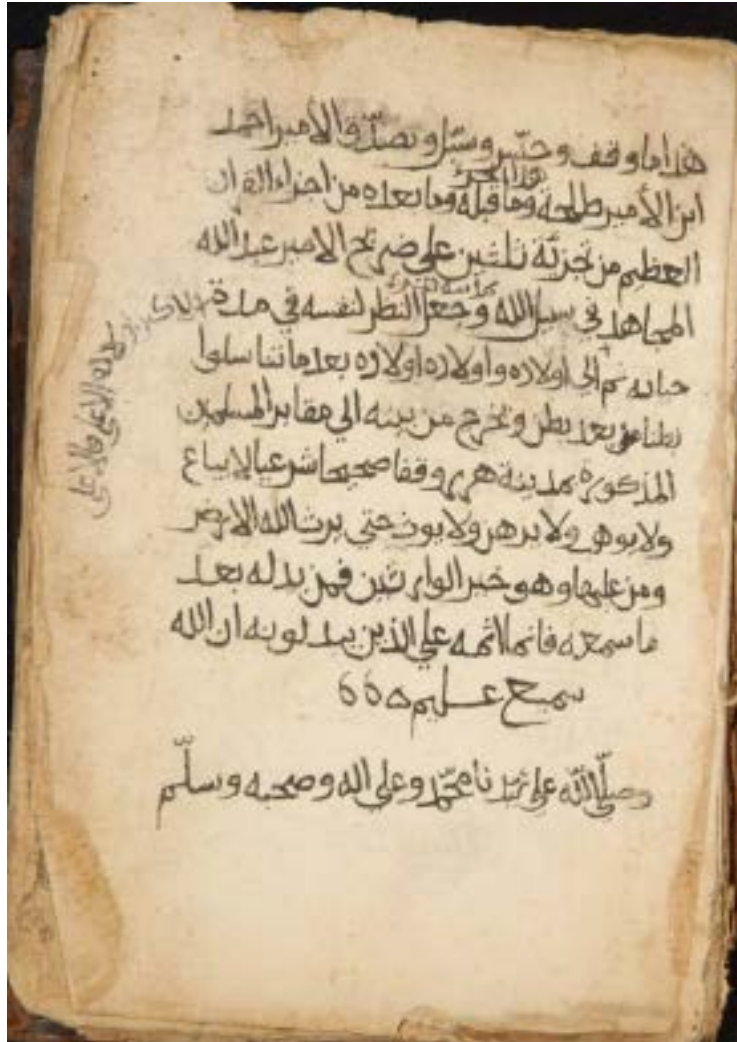 هذا ما وقف وحبس وسبل وتصدق الأمير احمد
هذا الجزء
ابن الأمير طلحة وما قبله وما بعده من اجزاء القران
العظيم من تجزئة ثلثين على ضريح الامير عبد الله
المجاهد في سبيل الله وجعل النظر لنفسه في مدة
حياته ثم الى اولاده واولاده اولاده بعد ما تناسلوا
بطنا بعد بطن وتخرج من بيته الي مقابر المسلمين
المذكورة بمدينة هرر وقفا صحيحا شرعيا لا يباع
ولا يوهب ولا يرهن ولا يورث حتي يرث الله الارض
ومن عليها وهو خير الوارثين فمن بدله بعد
ما سمعه فانما اثمه علي الذين يبدلونه ان الله
سميع عليم
وصلّى الله على سيدنا محمّد وعلى اله وصحبه وسلّم
اولاده الاعلى فالاعلى